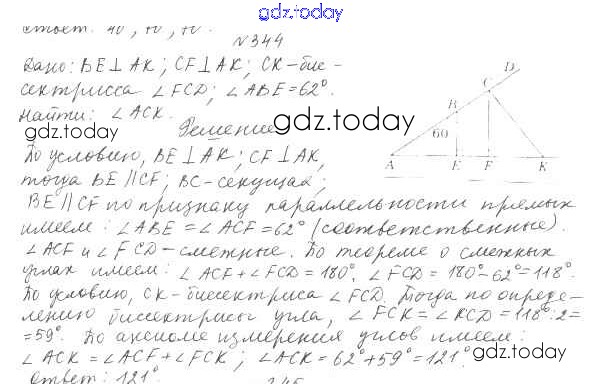 gdz.today
ответ. 40, 10, 10.
№344
Дано: BE⊥AK; CF⊥AK; CK-бис-
сектрисса ∠FCD; ∠ABE=62°.
Найти: ∠ACK.
gdz.today
Решение
gdz.today
A B C D E F K
60
По условию, BE⊥AK; CF⊥AK,
тогда BE∥CF; BC-секущая;
BE∥CF по признаку параллельности прямых
имеем: ∠ABE=∠ACF=62° (соответственные).
∠ACF и ∠FCD-смежные. По теореме о смежных
углах имеем: ∠ACF+∠FCD=180°, ∠FCD=180°-62°=118°.
По условию, CK-биссектриса ∠FCD. Тогда по опреде-
лению биссектрисы угла, ∠FCK=∠KCD=118°:2=
=59°. По аксиоме измерения углов имеем:
∠ACK=∠ACF+∠FCK; ∠ACK=62°+59°=121°.
gdz.today
Ответ: 121°.
gdz.today
345